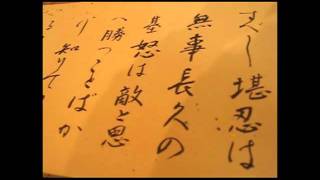 すべし堪忍は
無事長久の
基怒は敵と思
へ勝つことばか
り知りて